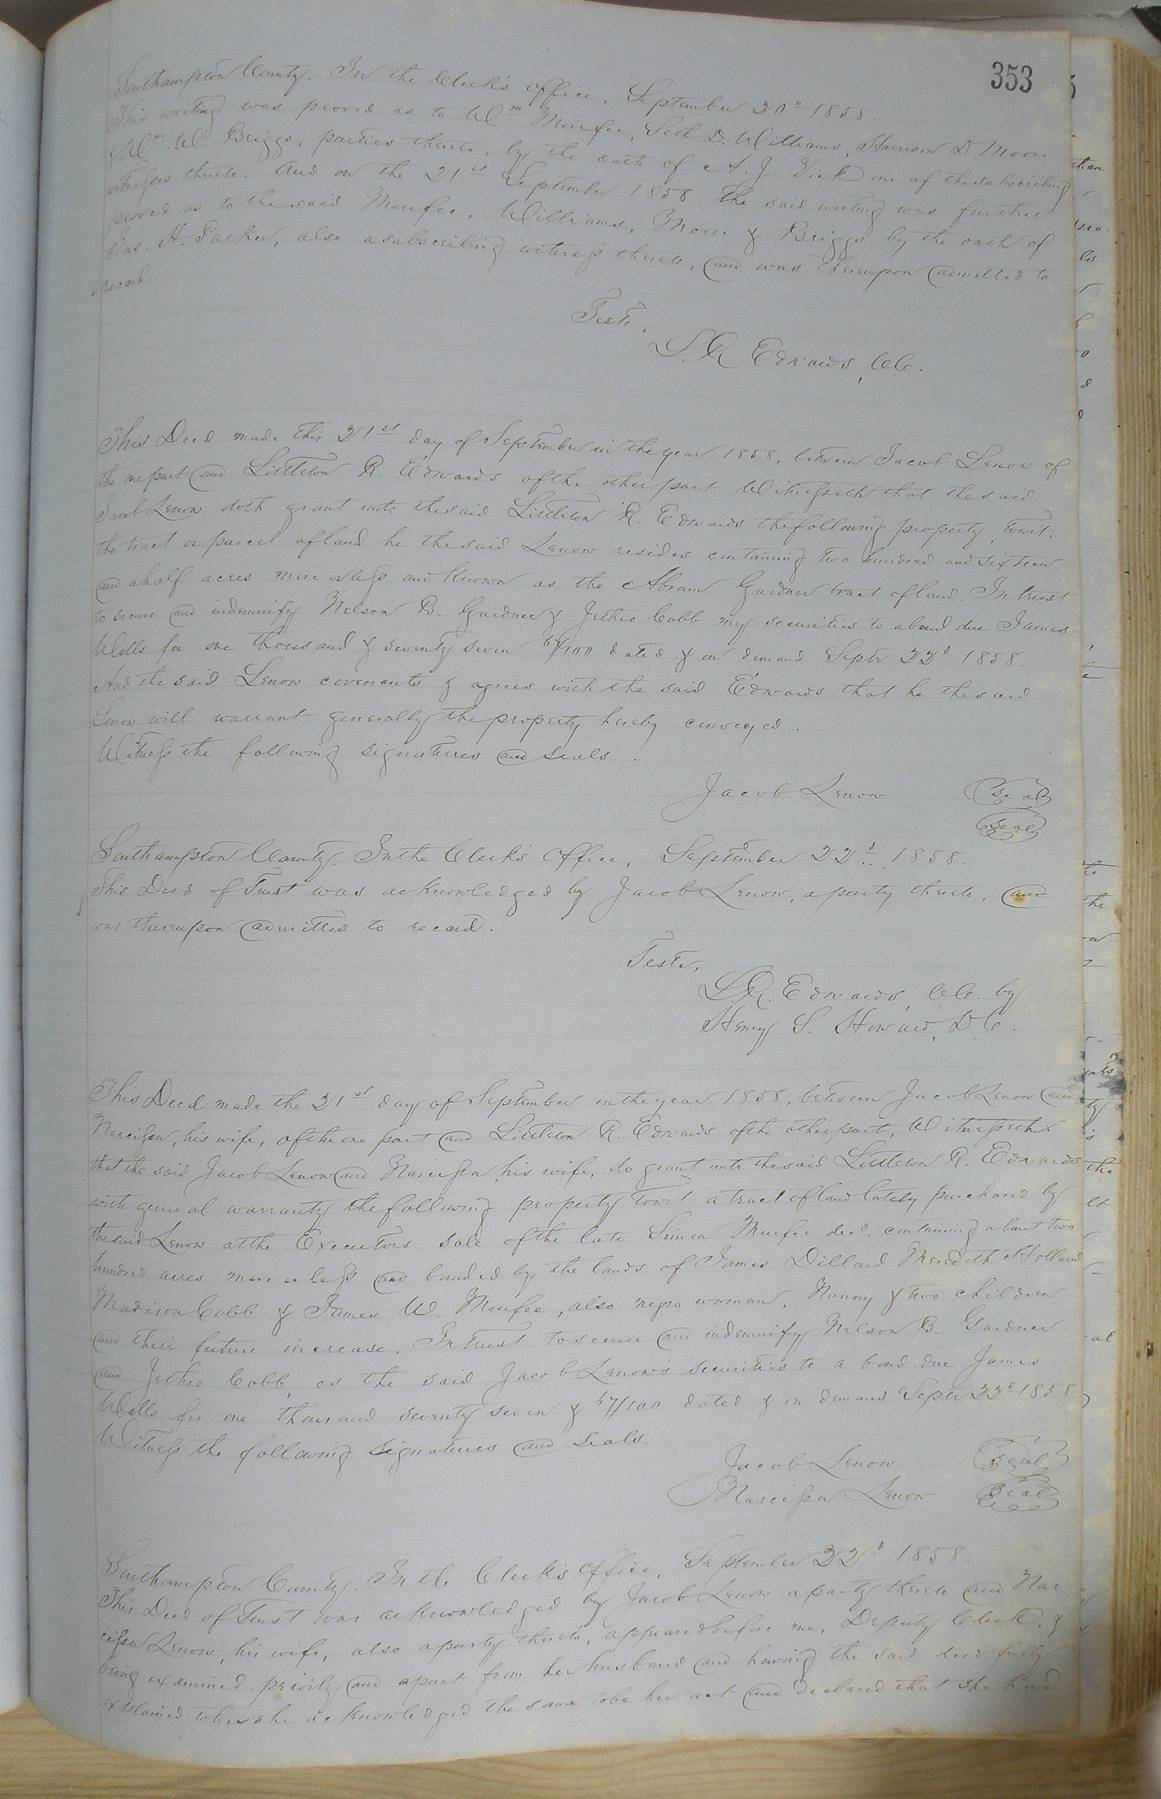 353
Southampton County. In the Clerk's Office, September 20th 1858.
This writing was proved as to Wm Murfee, Seth D. Williams, Harrison D Moore
& Wm. W. Briggs, parties thereto, by the oath of A. J. Vick one of the subscribing
witnesses thereto. And on the 21st September 1858 the said writing was further
proved as to the said Murfee, Williams, Moore & Briggs by the oath of
Jas. H. Parker, also a subscribing witness thereto, and was thereupon admitted to
record.
Teste,
L. R. Edwards, C.C.
This Deed made this 21st day of September in the year 1858, between Jacob Lenow of
the one part and Littleton R. Edwards of the other part Witnesseth that the said
Jacob Lenow doth grant unto the said Littleton R. Edwards the following property, towit:
the tract or parcel of land he the said Lenow resides containing two hundred and sixteen
and a half acres more or less and known as the Abram Gardner tract of land. In trust
to secure and indemnify Nelson B. Gardner & Jethro Cobb my securities to a bond due James
Wells for one thousand & seventy seven 67/100 dated & on demand Septr 22d 1858.
And the said Lenow covenants & agrees with the said Edwards that he the said
Lenow will warrant generally the property hereby conveyed.
Witness the following signatures and seals.
Jacob Lenow Seal
Seal
Southampton County. In the Clerk's Office, September 22d 1858.
This Deed of Trust was acknowledged by Jacob Lenow, a party thereto, and
was thereupon admitted to record.
Teste,
L. R. Edwards, C.C. by
Henry S. Howard, D.C.
This Deed made the 21st day of September in the year 1858, between Jacob Lenow and
Narcissa, his wife, of the one part and Littleton R. Edwards of the other part, Witnesseth
that the said Jacob Lenow and Narcissa, his wife, do grant unto the said Littleton R. Edwards
with general warranty the following property towit a tract of land lately purchased by
the said Lenow at the Executors sale of the late Simon Murfee decd. containing about two
hundred acres more or less and bounded by the lands of James Dillard Meredith Holland
Madison Cobb & James W. Murfee, also negro woman, Nanny & two children
and their future increase. In trust to secure and indemnify Nelson B. Gardner
and Jethro Cobb, as the said Jacob Lenow's securities to a bond due James
Wells for one thousand seventy seven & 67/100 dated & on demand Septr 22d 1858
Witness the following signatures and seals.
Jacob Lenow Seal
Narcissa Lenow Seal
Southampton County. In the Clerk's Office, September 22d 1858.
This Deed of Trust was acknowledged by Jacob Lenow a party thereto and Nar-
cissa Lenow, his wife, also a party thereto, appeared before me, Deputy Clerk, &
being examined privily and apart from her husband and having the said deed fully
explained to her she acknowledged the same to be her act and declared that she had